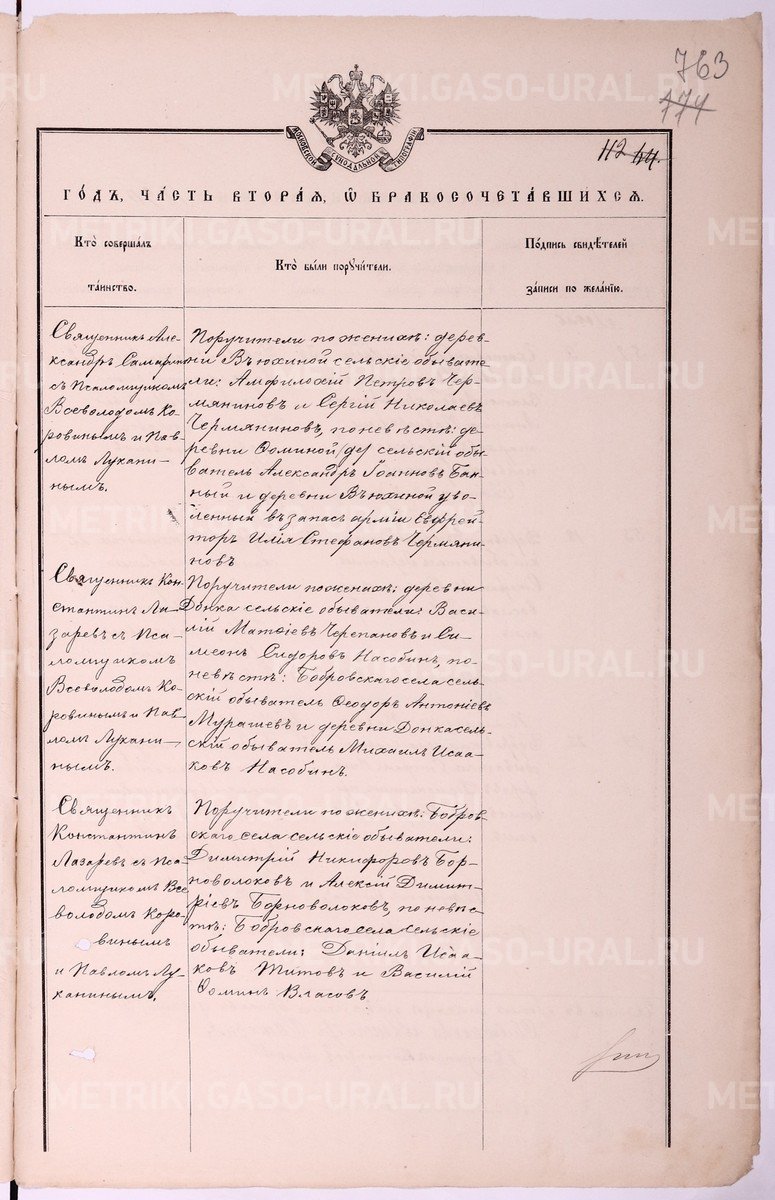 763
774
МОСКОВСКОЙ СѴНОДАЛЬНОЙ ТИПОГРАФІИ
112 44.
ГОДЪ, ЧАСТЬ ВТОРАѦ, Ѡ БРАКОСОЧЕТАВШИХСѦ.
Кто̀ соверша́лъ
та́инство.
Кто̀ бы́ли порꙋчи́тели.
По́дпись свидѣ́телей
за́писи по жела́нїю.
Священникъ Але-
ксандръ Самаринъ
съ Псаломщикомъ
Всеволодомъ Ко-
ровинымъ и Пав-
ломъ Лукани-
нымъ.
Поручители по женихѣ: дерев-
ни Вьюхиной сельскіе обывате-
ли: Амфилохій Петровъ Чер-
мяниновъ и Сергій Николаевъ
Чермяниновъ, по невѣстѣ: де-
ревни Ѳоминой (де) сельскій обы-
ватель Александръ Іоанновъ Бан-
ный и деревни Вьюхиной уво-
ленный въ запасъ арміи Ефрей-
торъ Илія Стефановъ Чермяни-
новъ
Священникъ Кон-
стантинъ Ла-
заревъ съ Пса-
ломщикомъ
Всеволодомъ Ко-
ровинымъ и Пав-
ломъ Лукани-
нымъ.
Поручители по женихѣ: деревни
Донка сельскіе обыватели: Васи-
лій Матѳіевъ Черепановъ и Си-
меонъ Сидоровъ Насобинъ, по
невѣстѣ: Бобровскаго села, сель-
скій обыватель Ѳеодоръ Антоніевъ
Мурашевъ и деревни Донка сель-
скій обыватель Михаилъ Исаа-
ковъ Насобинъ.
Священникъ
Константинъ
Лазаревъ съ Пса-
ломщикомъ Все-
володомъ Коро-
винымъ
и Павломъ Лу-
канинымъ.
Поручители по женихѣ: Бобров-
скаго села сельскіе обыватели:
Димитрій Никифоровъ Бор-
новолоковъ и Алексій Димит-
ріевъ Борноволоковъ, по невѣс-
тѣ: Бобровскаго села сельскіе
обыватели: Даніилъ Исаа-
ковъ Титовъ и Василій
Ѳоминъ Власовъ
METRIKI.GASO-URAL.RU